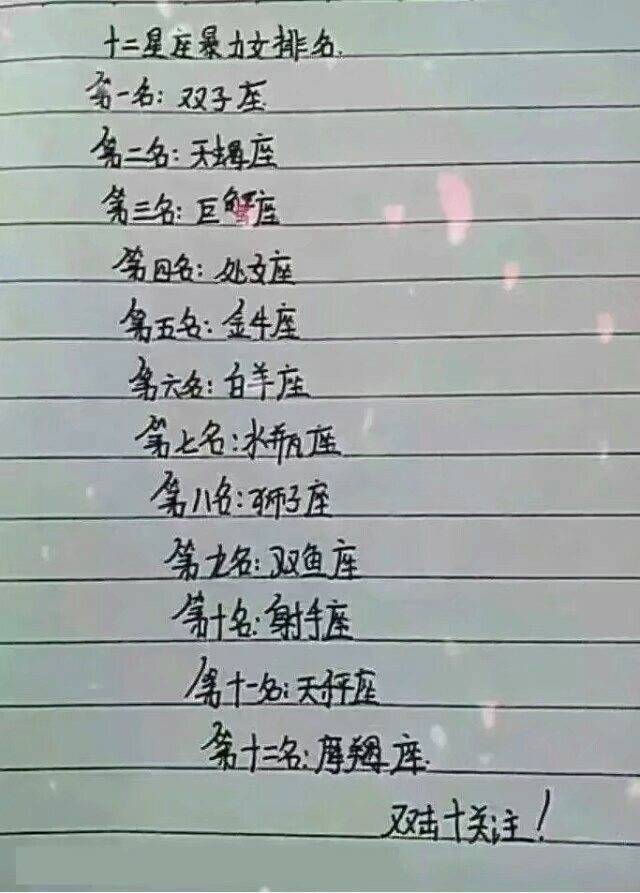 十二星座暴力女排名.
第一名：双子座
第二名：天蝎座
第三名：巨蟹座
第四名：处女座
第五名：金牛座
第六名：白羊座
第七名：水瓶座
第八名：狮子座
第九名：双鱼座
第十名：射手座
第十一名：天秤座
第十二名：摩羯座.
双击十关注！